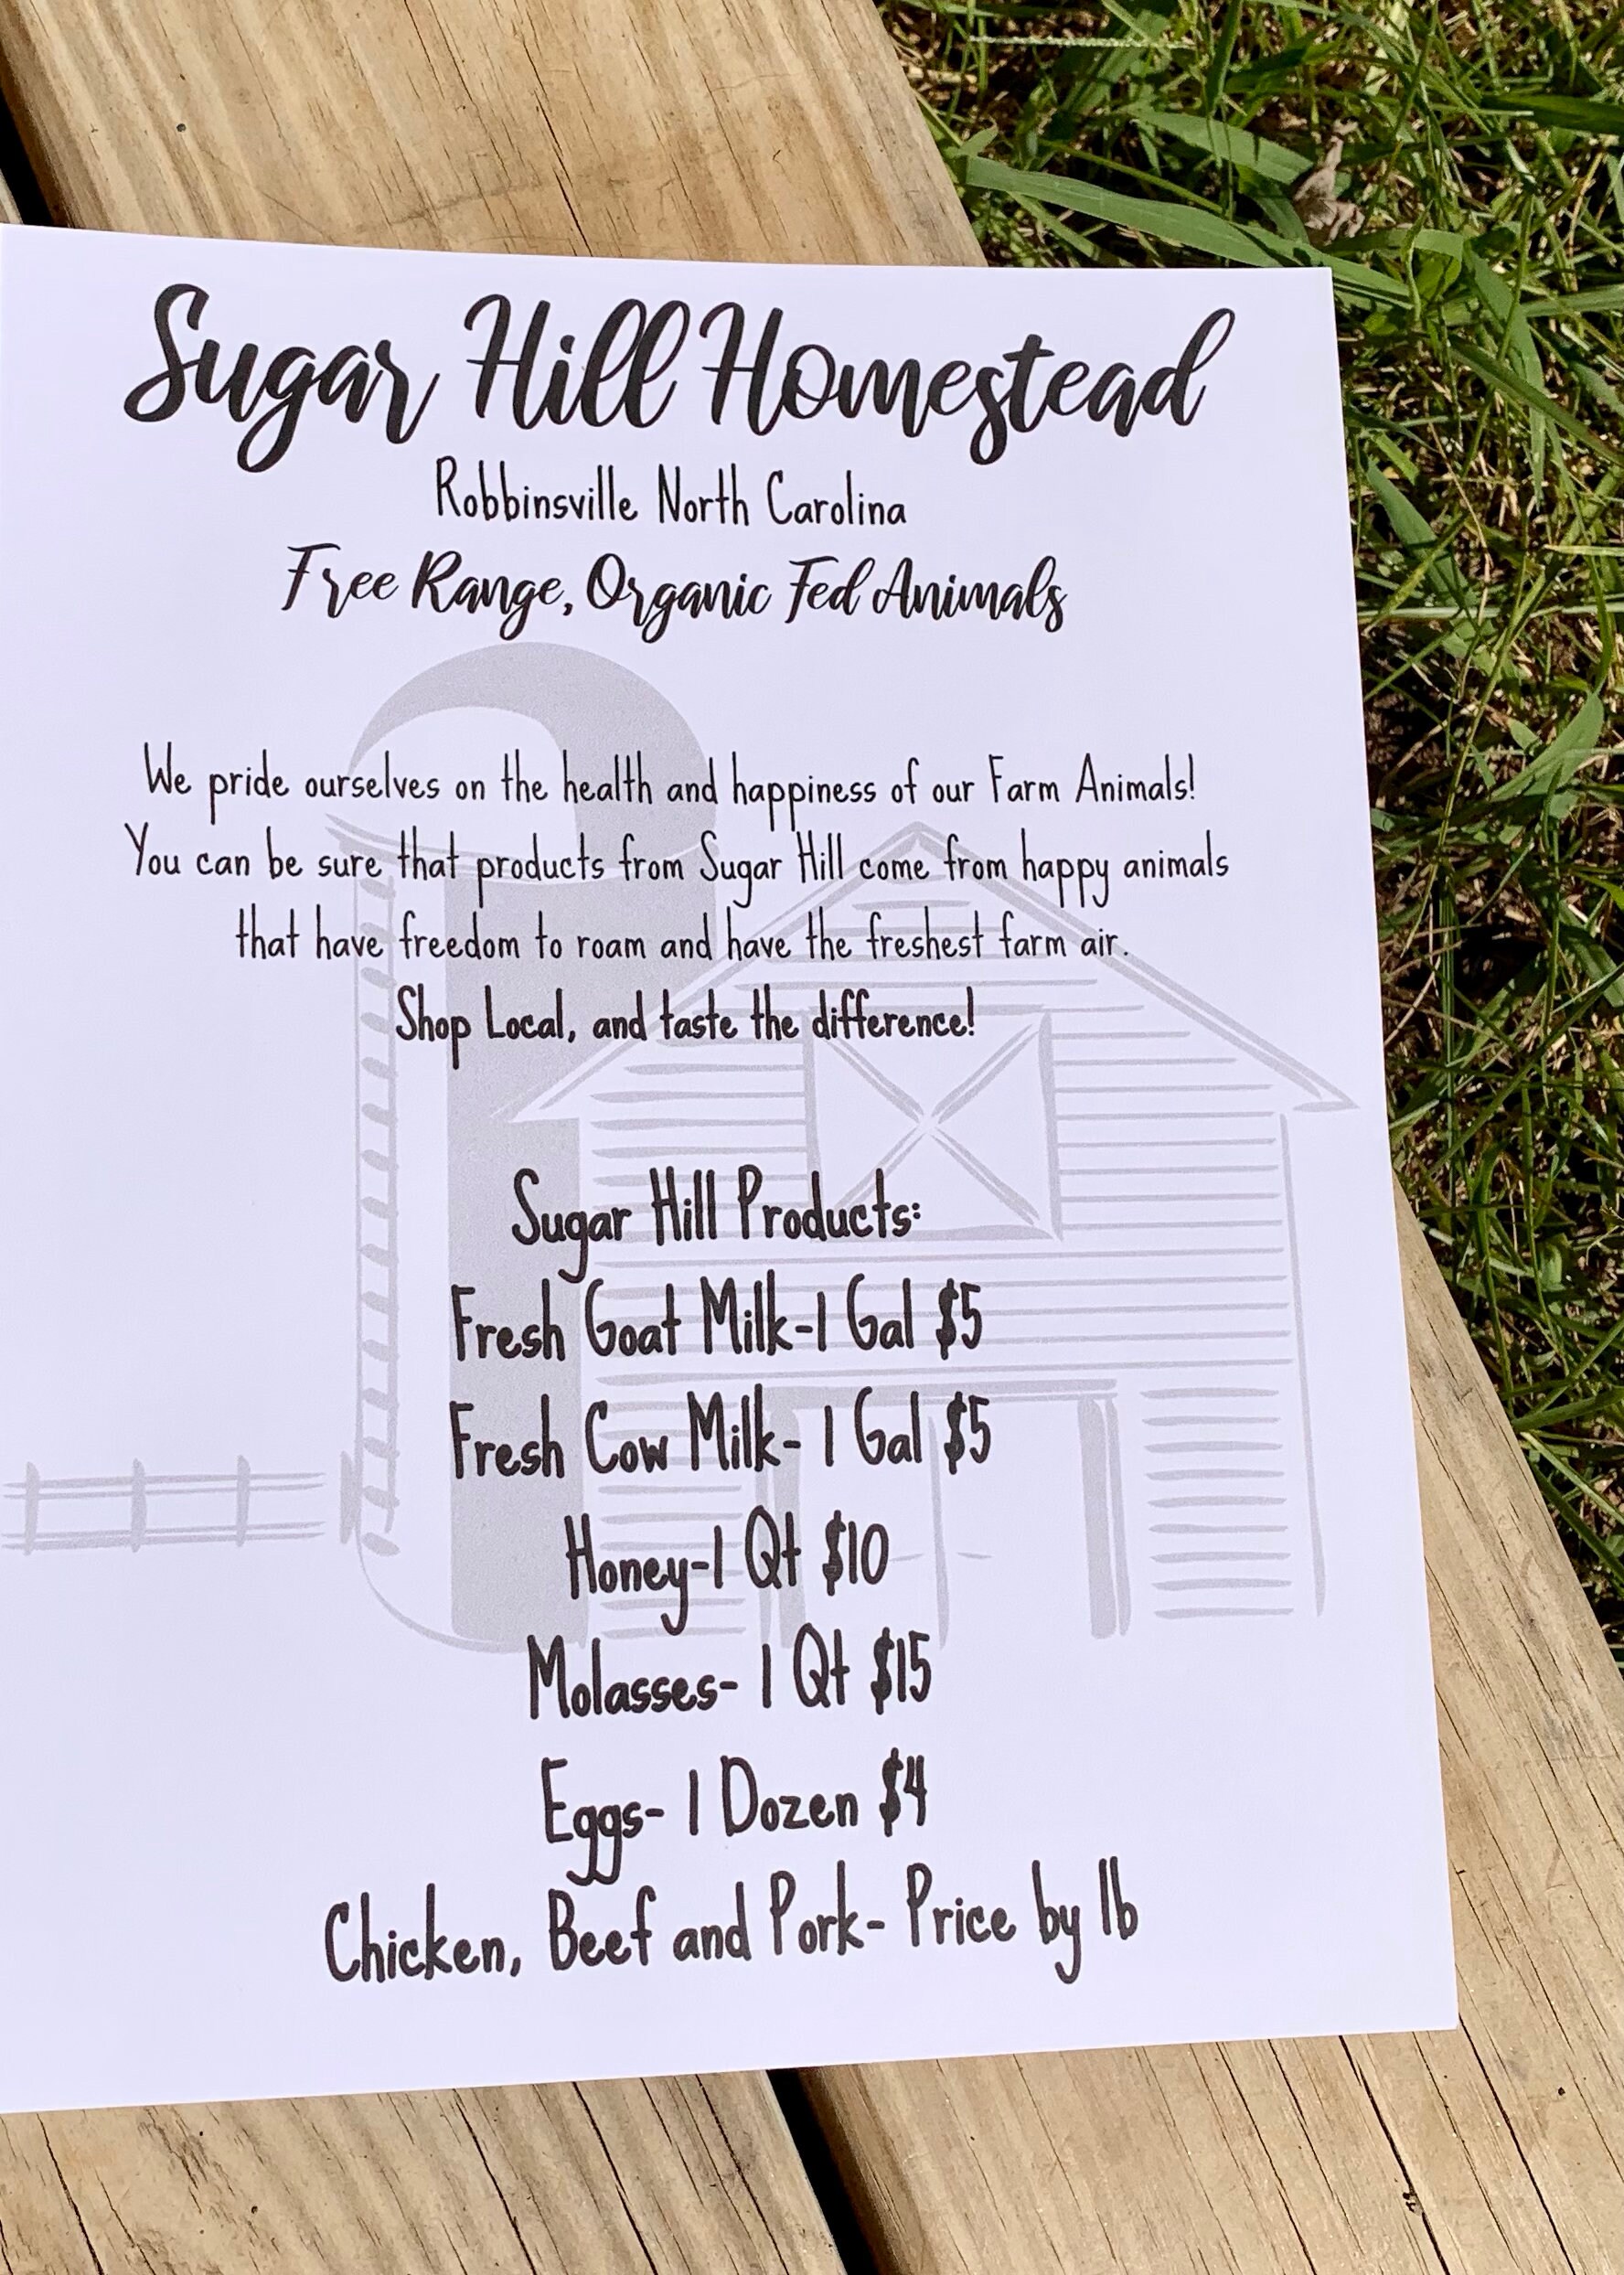 Sugar Hill Homestead
Robbinsville North Carolina
Free Range, Organic Fed Animals
We pride ourselves on the health and happiness of our Farm Animals!
You can be sure that products from Sugar Hill come from happy animals
that have freedom to roam and have the freshest farm air.
Shop Local, and taste the difference!
Sugar Hill Products:
Fresh Goat Milk-1 Gal $5
Fresh Cow Milk- 1 Gal $5
Honey-1 Qt $10
Molasses- 1 Qt $15
Eggs- 1 Dozen $4
Chicken, Beef and Pork- Price by lb